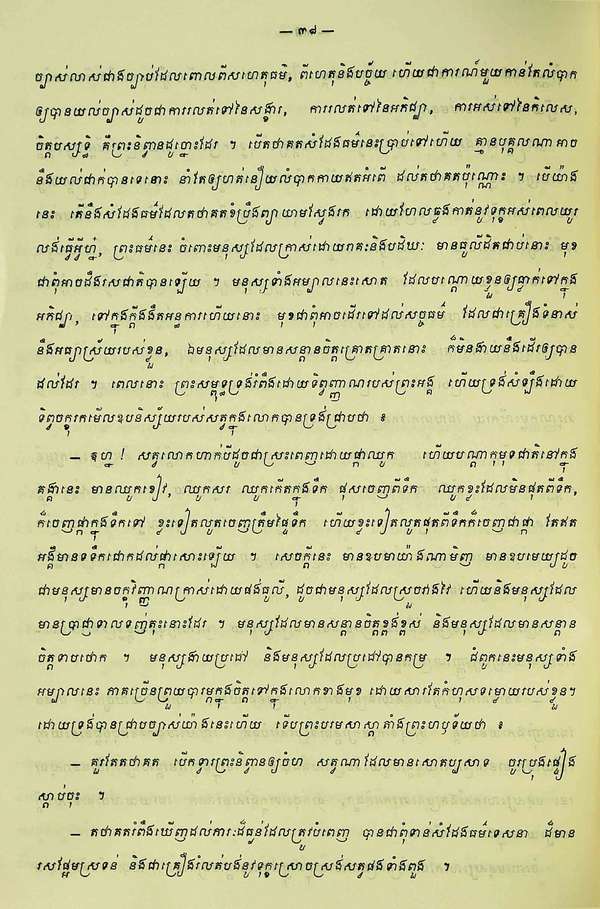 — ៣៨ —
ច្បាស់លាស់ជាងច្បាប់ដែលពោលពីសហេតុធម៌, ពីហេតុនិងបច្ច័យ ហើយជាការណ៍មួយកាន់តែលំបាក
ឲ្យបានយល់ច្បាស់ដូចជាការរលត់ទៅនៃសង្ខារ, ការរលត់ទៅនៃអភិជ្ឈា, ការអស់ទៅនៃកិលេស,
ចិត្តបស្សទ្ធិ គឺព្រះនិព្វានដូច្នោះដែរ ។ បើតថាគតសំដែងធម៌នេះប្រាប់ទៅហើយ គ្មានបុគ្គលណាអាច
នឹងយល់ជាក់បានទេនោះ នាំតែឲ្យហត់នឿយលំបាកកាយឥតអំពើ ដល់តថាគតប៉ុណ្ណោះ ។ បើយ៉ាង
នេះ តើនឹងសំដែងធម៌ដែលតថាគតខំប្រឹងព្យាយាមស្វែងរក ដោយហែលឆ្លងកាត់នូវទុក្ខអស់ពេលយូរ
លង់ធ្វើអ្វីហ្ន៎, ព្រះធម៌នេះ ចំពោះមនុស្សដែលក្រាស់ដោយរាគៈនិងបដិឃៈ មានធូលីដិតជាប់នោះ មុខ
ជាពុំអាចដឹងរសជាតិបានឡើយ ។ មនុស្សទាំងអម្បាលនេះសោត ដែលបណ្ដោយខ្លួនឲ្យធ្លាក់ទៅក្នុង
អភិជ្ឈា, ទៅក្នុងក្ដីងងឹតអន្ធការហើយនោះ មុខជាពុំអាចដើរទៅដល់សច្ចធម៌ ដែលជាគ្រឿងទំនាស់
នឹងអធ្យាស្រ័យរបស់ខ្លួន, ឯមនុស្សដែលមានសន្ដានចិត្តគ្រោតគ្រាតនោះ ក៏មិនងាយនឹងដើរឲ្យបាន
ដល់ដែរ ។ ពេលនោះ ព្រះសម្ពុទ្ធទ្រង់រំពឹងដោយទិព្វញ្ញាណរបស់ព្រះអង្គ ហើយទ្រង់សំឡឹងដោយ
ទិព្វចក្ខុរកមើលឧបនិស្ស័យរបស់សត្វក្នុងលោកបានទ្រង់ជ្រាបថា ៖
— ឧហ្ន ! សត្វលោកហាក់បីដូចជាស្រះពេញដោយផ្កាឈូក ហើយបណ្ដាកុមុទជាតិនៅក្នុង
គង្គានេះ មានឈូកខៀវ, ឈូកស ឈូកកើតក្នុងទឹក ផុសចេញពីទឹក ឈូកខ្លះដែលមិនផុតពីទឹក,
ក៏ចេញផ្កាក្នុងទឹកទៅ ខ្លះទៀតលូតចេញត្រឹមផ្ទៃទឹក ហើយខ្លះទៀតលូតផុតពីទឹកក៏ចេញជាផ្កា តែឥត
អង្គីមានទទឹកជោកដល់ផ្កាសោះឡើយ ។ សេចក្ដីនេះ មានឧបមាយ៉ាងណាមិញ មានឧបមេយ្យដូច
ជាមនុស្សមានចក្ខុវិញ្ញាណក្រាស់ដោយផង់ធូលី, ដូចជាមនុស្សដែលស្រួចវាងវៃ ហើយនិងមនុស្សដែល
មានប្រាជ្ញាទាលទញ់គ្នុះនោះដែរ ។ មនុស្សដែលមានសន្ដានចិត្តខ្ពង់ខ្ពស់ និងមនុស្សដែលមានសន្ដាន
ចិត្តទាបថោក ។ មនុស្សងាយប្រដៅ និងមនុស្សដែលប្រដៅបានកម្រ ។ ជំពូកនេះមនុស្សទាំង
អម្បាលនេះ ភាគច្រើនព្រួយបារម្ភក្នុងចិត្តទៅក្នុងលោកខាងមុខ ដោយសារតែកំហុសទម្លាយរបស់ខ្លួន។
ដោយទ្រង់បានជ្រាបច្បាស់យ៉ាងនេះហើយ ទើបព្រះបរមសាស្ដាតាំងព្រះហឫទ័យថា ៖
— គួរតែតថាគត បើកទ្វារព្រះនិព្វានឲ្យចំហ សត្វណាដែលមានសោតប្បសាទ ចូរប្រុងផ្ទៀង
ស្ដាប់ចុះ ។
— តថាគតរំពឹងឃើញដល់ភារៈដ៏ធ្ងន់ដែលត្រូវបំពេញ បានជាពុំទាន់សំដែងធម៌ទេសនា ដ៏មាន
រសផ្អែមស្រទន់ និងជាគ្រឿងរំលត់បង់នូវទុក្ខស្រោចស្រង់សត្វផងទាំងពួង ។